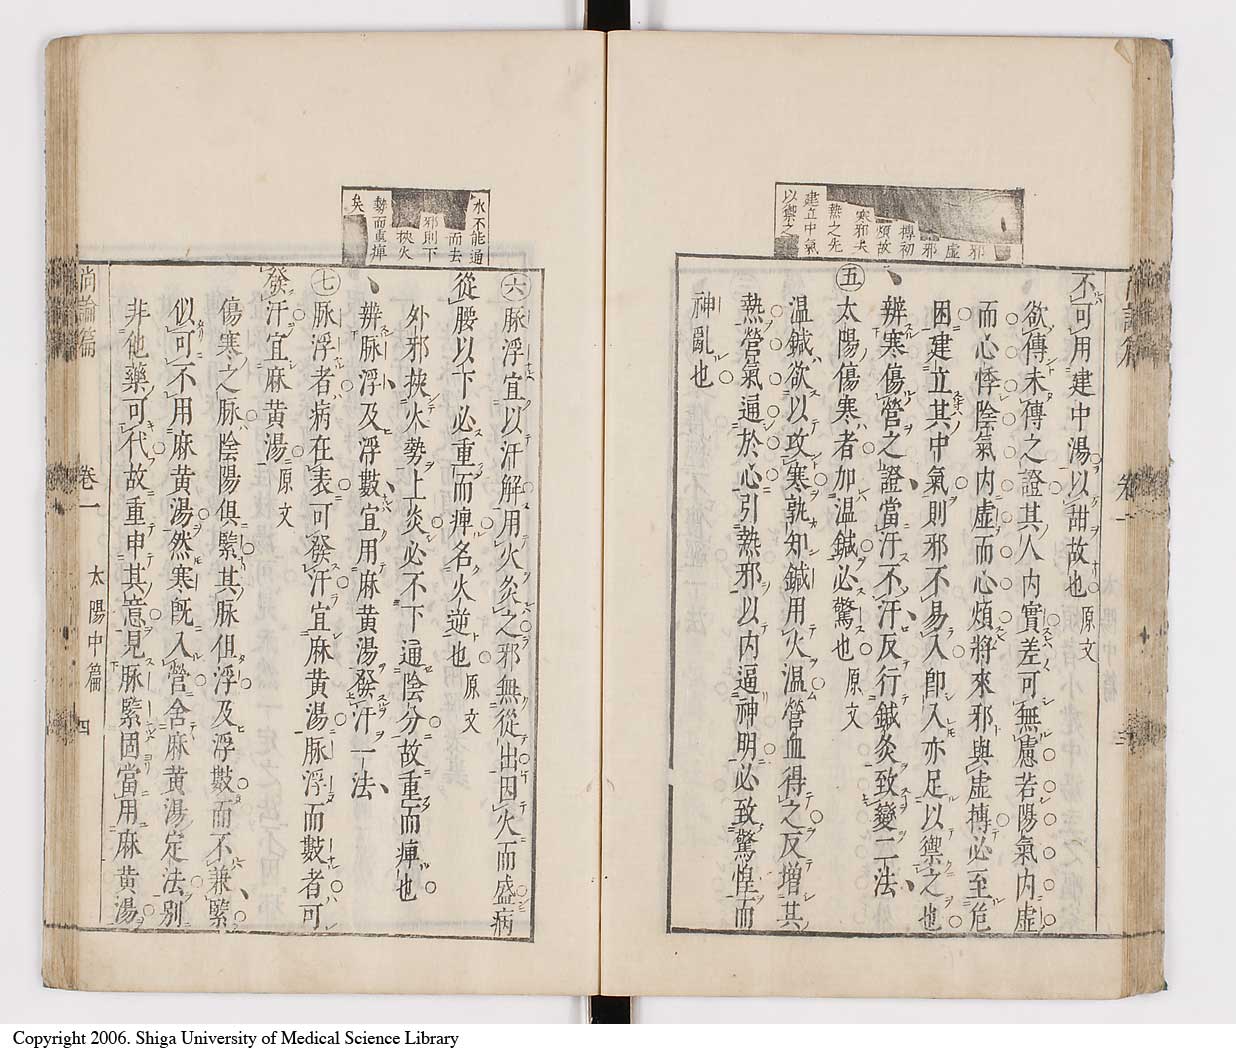 不可用建中湯以甜故也 原文
欲傳未傳之證其人内實差可無慮若陽氣内虛
而心悸陰氣内虛而心煩將來邪與虛搏必至危
困建立其中氣則邪不易入卽入亦足以禦之也
辨寒傷營之證當汗不汗反行鍼灸致變二法
㊄太陽傷寒者加温鍼必驚也 原文
温鍼欲以攻寒孰知鍼用火温營血得之反增其
熱營氣逼於心引熱邪以内逼神明必致驚惶而
神亂也
邪
虛
邪
搏初
煩故
寒邪未
熱之先
建立中氣
以禦之
卷一
太陽中篇
三
㊅脉浮宜以汗解用火灸之邪無從出因火而盛病
從腰以下必重而痺名火逆也 原文
外邪挾火勢上炎必不下通陰分故重而痺也
辨脉浮及浮數宜用麻黄湯發汗一法
㊆脉浮者病在表可發汗宜麻黄湯脉浮而數者可
發汗宜麻黄湯 原文
傷寒之脉陰陽俱緊其脉但浮及浮數而不兼緊
似可不用麻黄湯然寒旣入營舍麻黄湯定法別
非他藥可代故重申其意見脉緊固當用麻黄湯
水不能通
而去
邪則下
挾火
勢而重痺
矣
尚論篇
卷一
太陽中篇
四
Copyright 2006. Shiga University of Medical Science Library